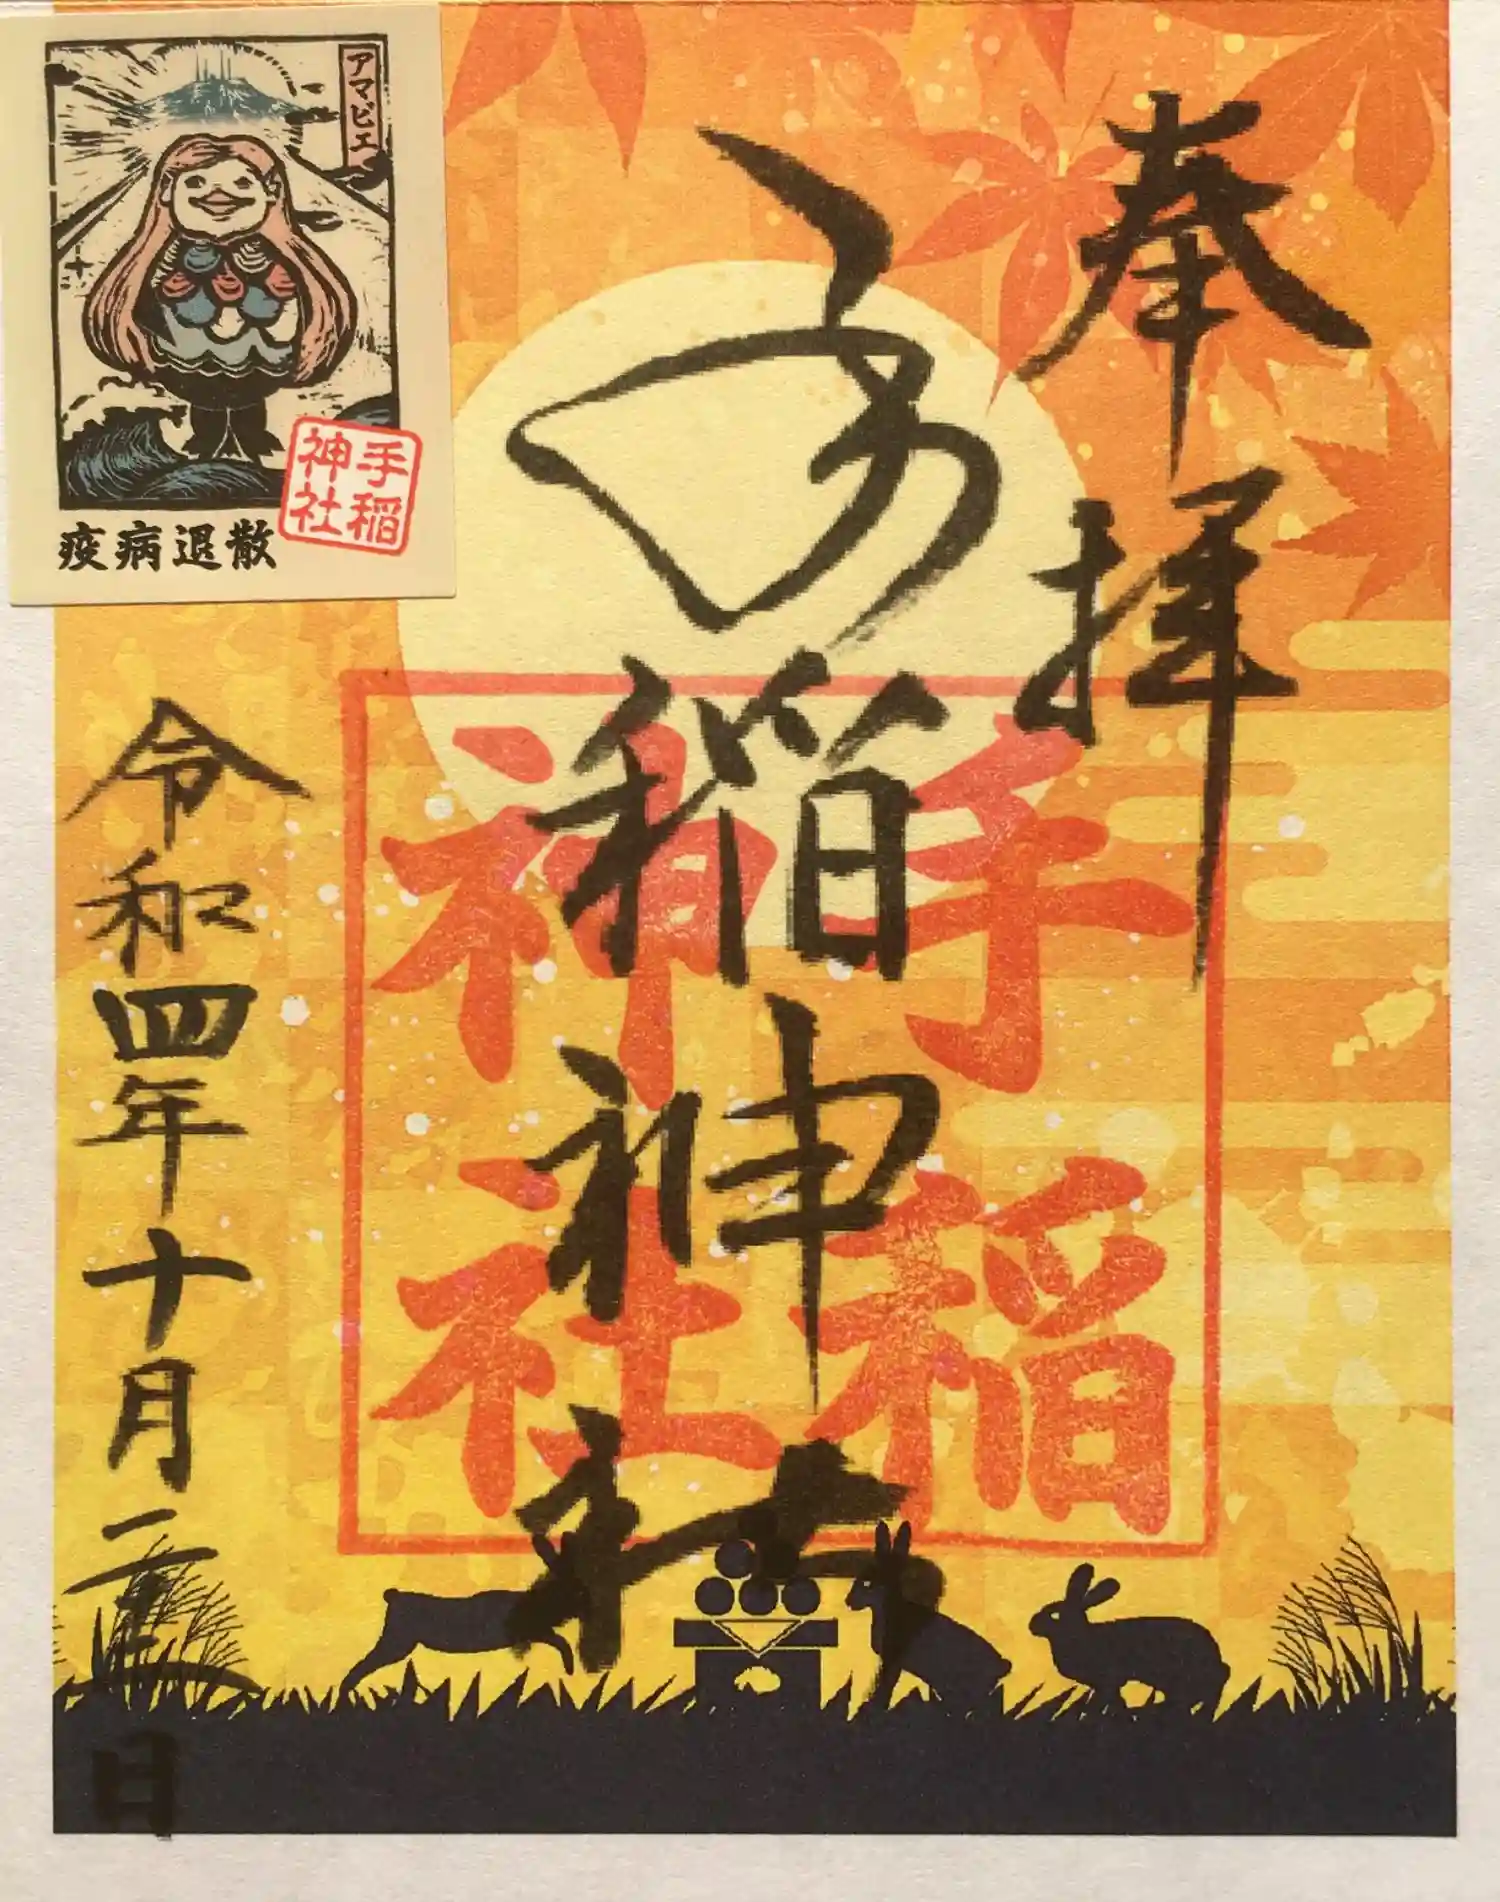 奉拝
手稲神社
手稲
神社
令和四年十月二日
アマビエ
疫病退散
手稲
神社